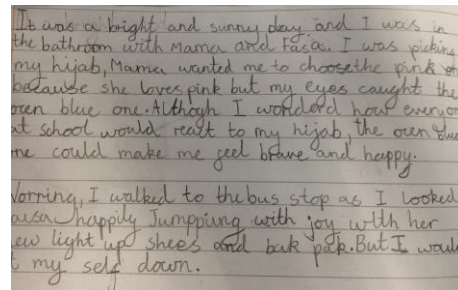 It was a bright and sunny day and I was in
the bathroom with Mama and Fasa. I was picking
my hijab, Mama wanted me to choose the pink
because she loves pink but my eyes caught the
oren blue one. Althogh I wonderd how everyon
at school would react to my hijab, the oren blue
one could make me feel brave and happy.
Worring, I walked to the bus stop as I looked
happily Jumppiung with joy with her
new light up shees and bak pak. But I woul
my self down.